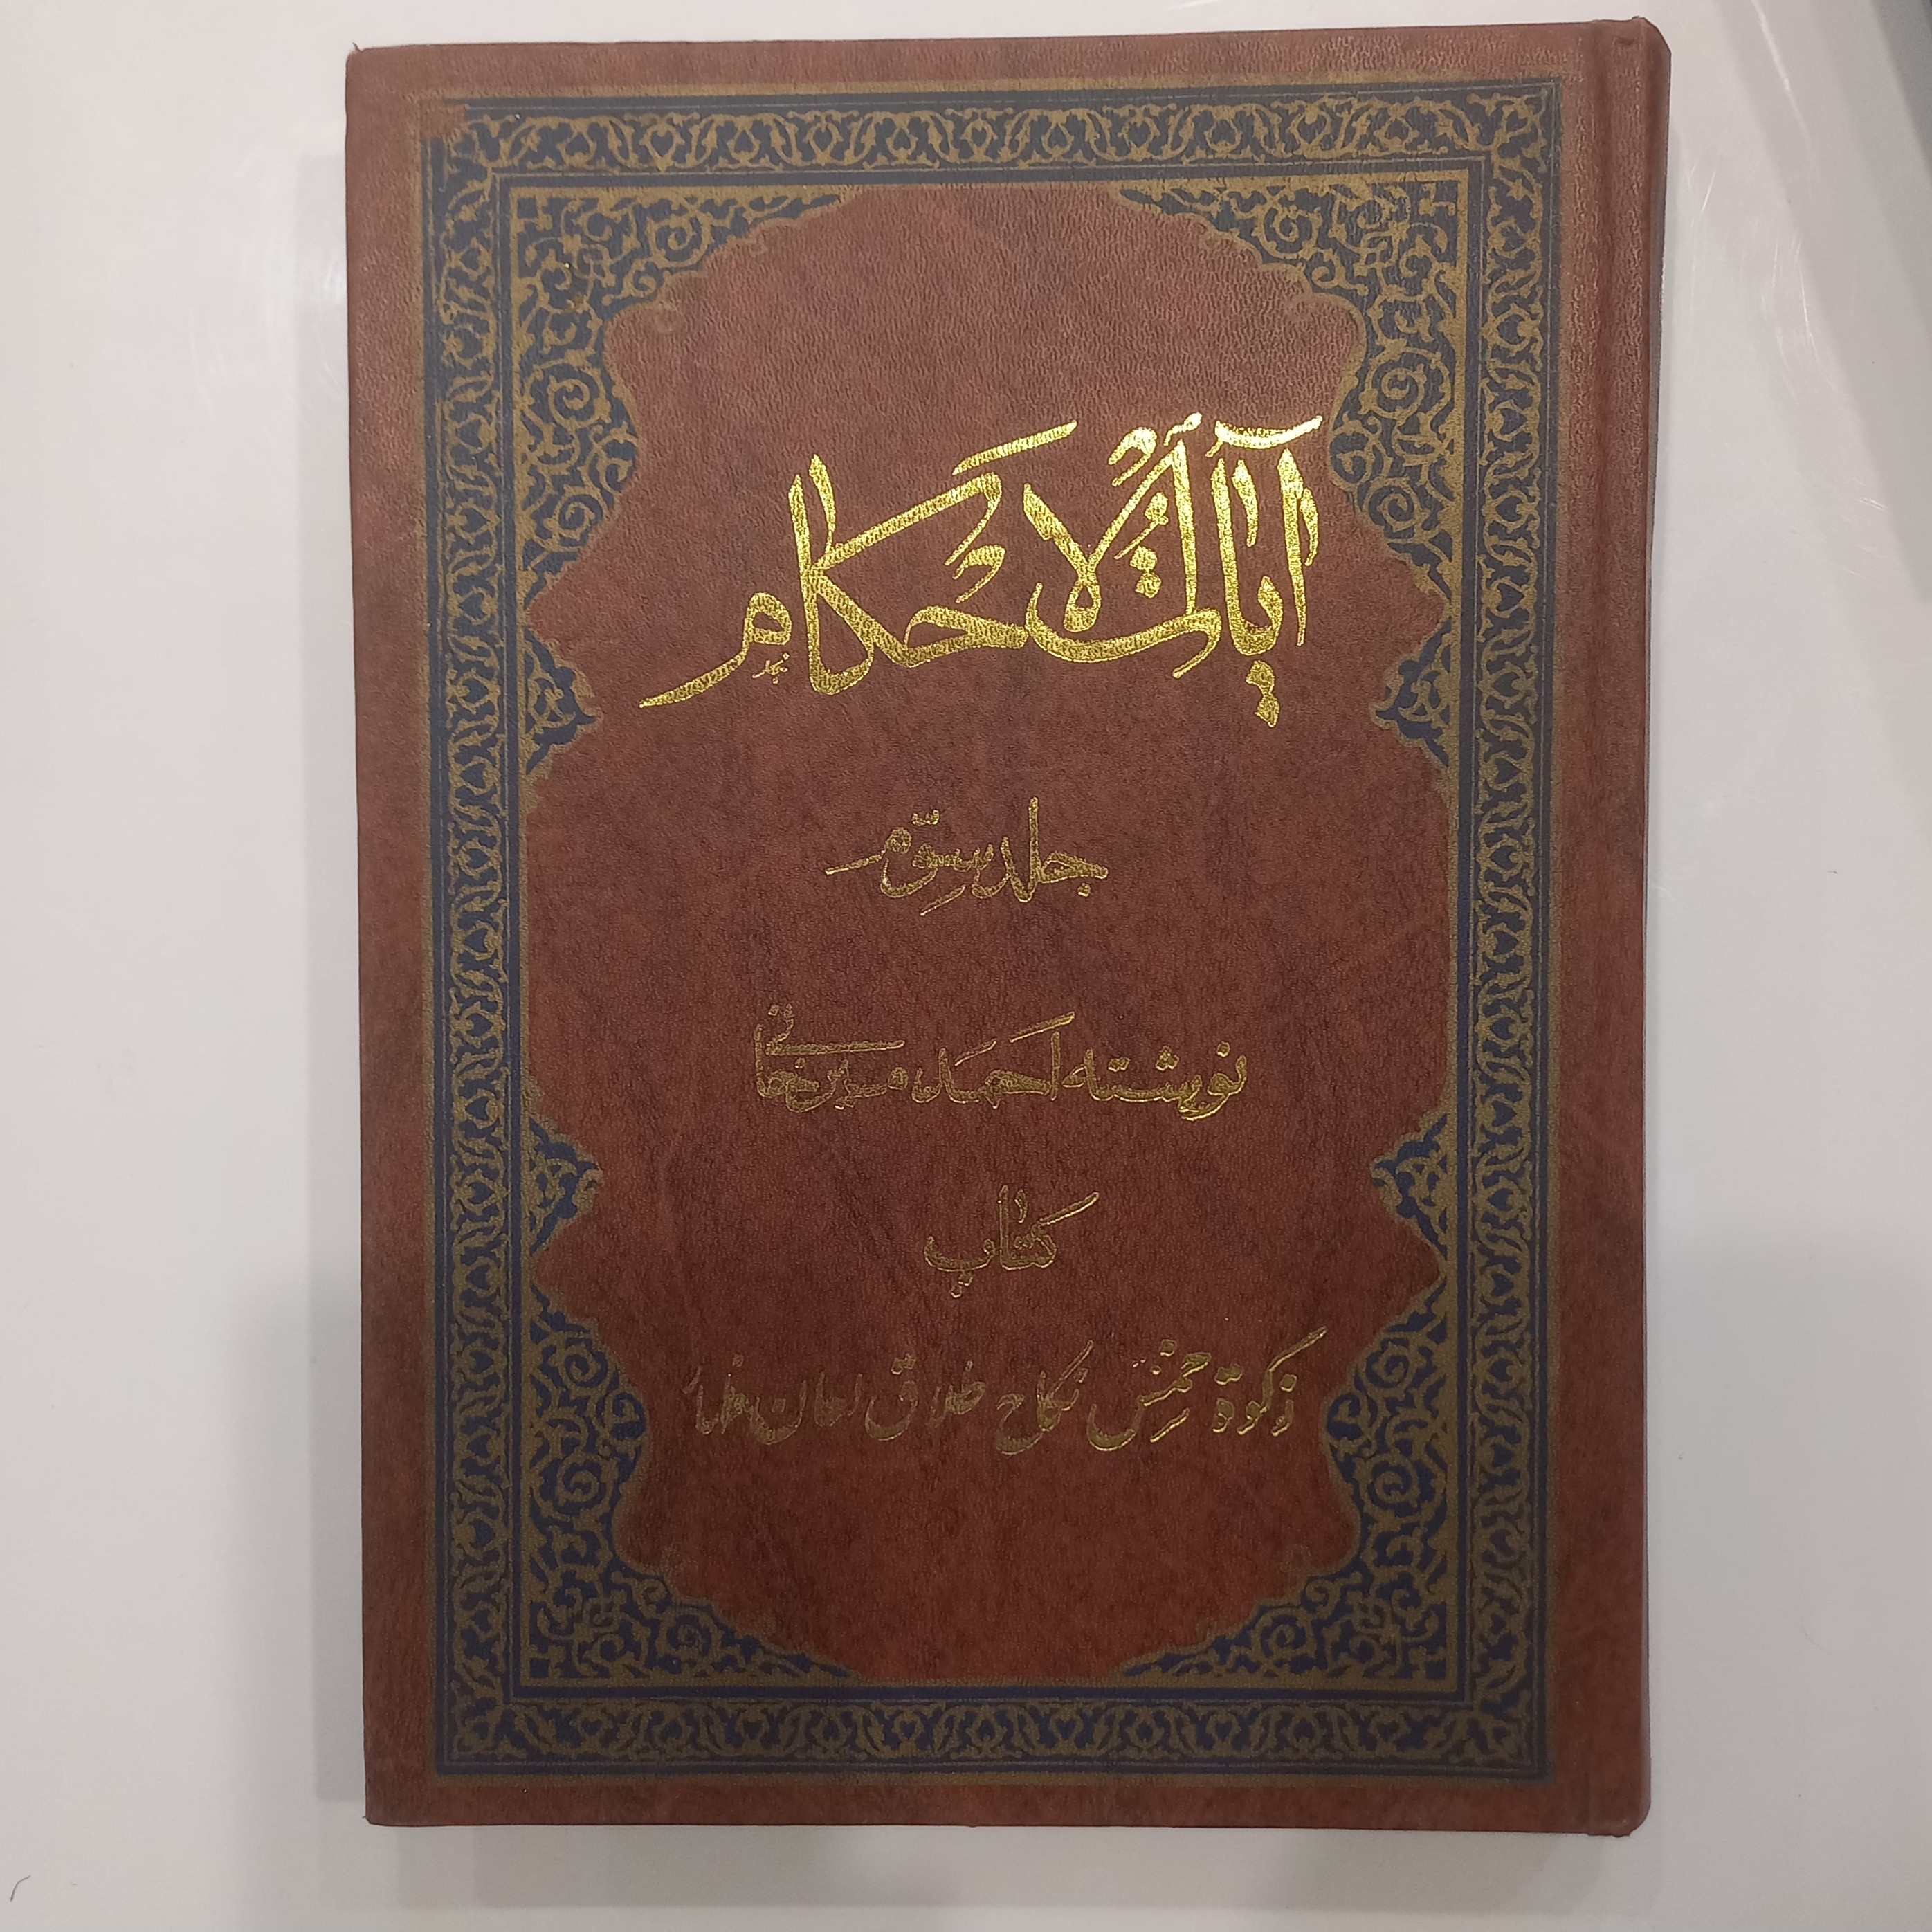 آیاتُ الْاَحْکام
جلد سوّم
نوشته احمد میرخانی
کتاب
زکوة خمس نکاح طلاق لعان ظهار